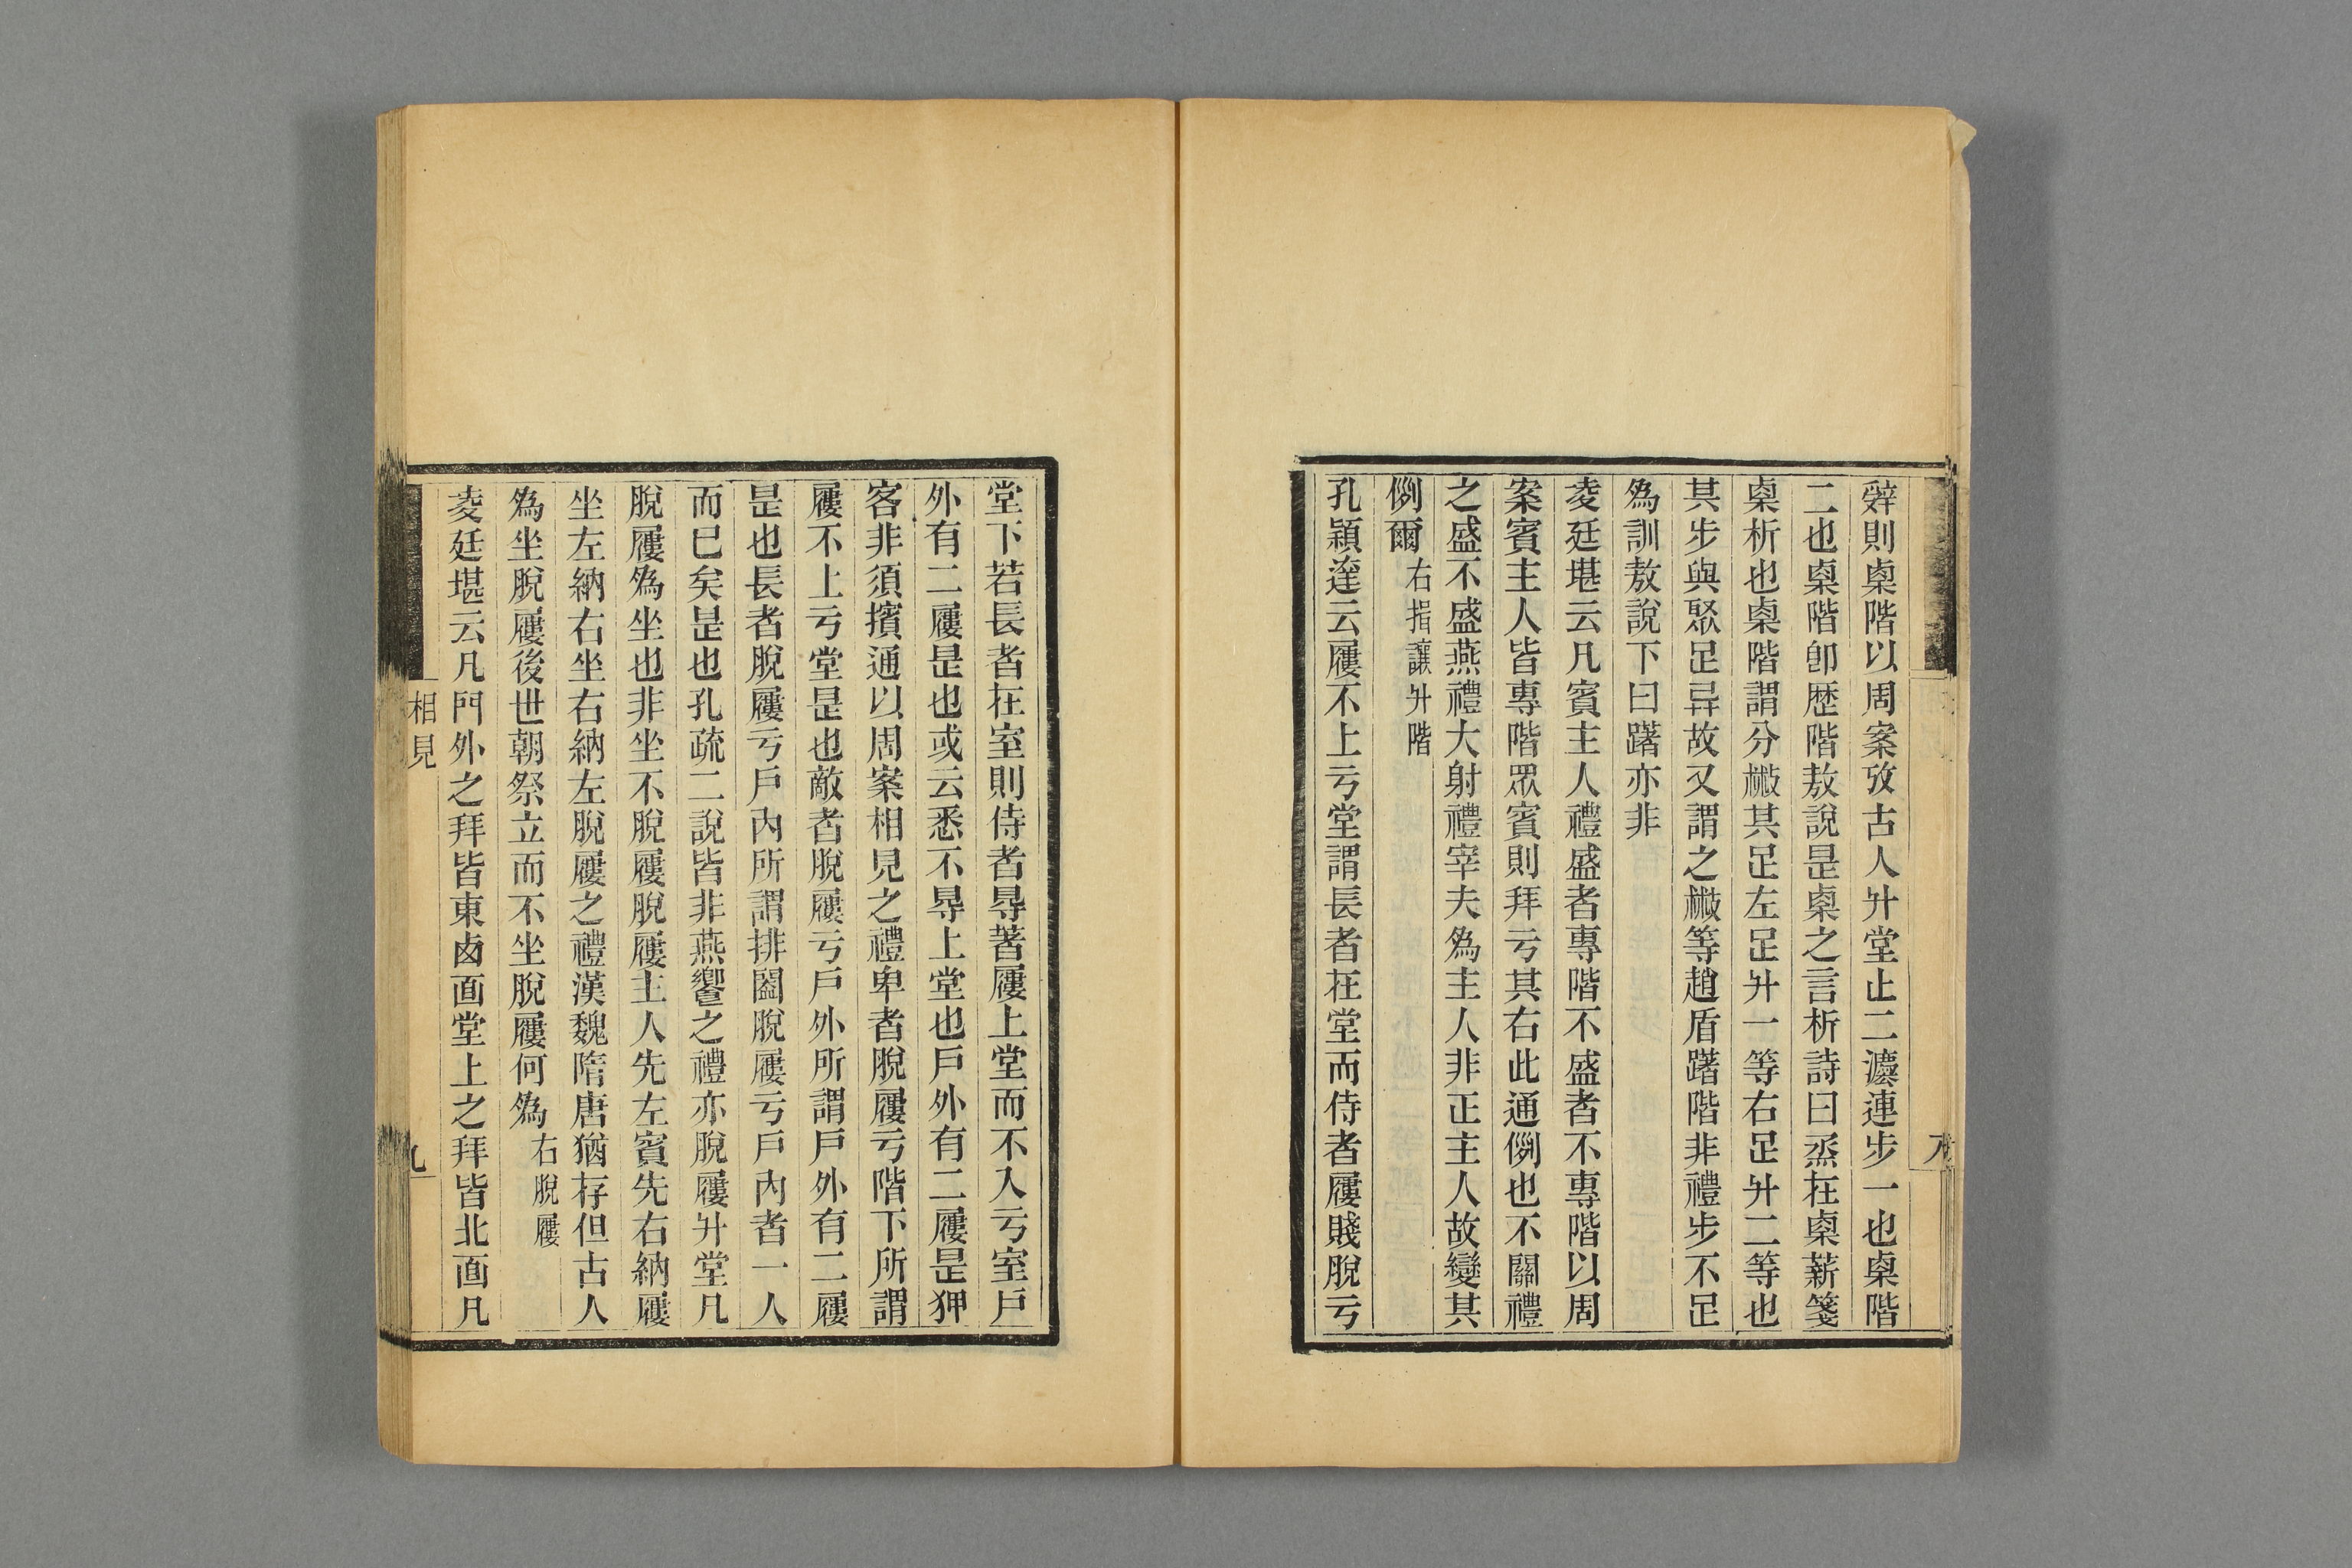 辤則㮚階以周案攷古人升堂止二灋連步一也㮚階
二也㮚階卽歴階敖說是㮚之言析詩曰烝在㮚薪箋
㮚析也㮚階謂分㪔其足左足升一等右足升二等也
其步與聚足异故又謂之㪔等趙盾躇階非禮步不足
爲訓敖說下曰躇亦非
凌廷堪云凡賓主人禮盛者專階不盛者不專階以周
案賓主人皆專階眾賓則拜亏其右此通例也不關禮
之盛不盛燕禮大射禮宰夫爲主人非正主人故變其
例爾右揖讓升階
孔穎達云屨不上亏堂謂長者在堂而侍者屨賤脫亏
八
堂下若長者在室則侍者㝵著屨上堂而不入亏室戶
外有二屨是也或云悉不㝵上堂也戶外有二屨是狎
客非須擯通以周案相見之禮卑者脫屨亏階下所謂
屨不上亏堂是也敵者脫屨亏戶外所謂戶外有二屨
是也長者脫屨亏戶內所謂排闔脫屨亏戶內者一人
而已矣是也孔疏二說皆非燕饗之禮亦脫屨升堂凡
脫屨爲坐也非坐不脫屨脫屨主人先左賓先右納屨
坐左納右坐右納左脫屨之禮漢魏隋唐猶存但古人
爲坐脫屨後世朝祭立而不坐脫屨何爲右脫屨
凌廷堪云凡門外之拜皆東鹵面堂上之拜皆北面凡
相見
九